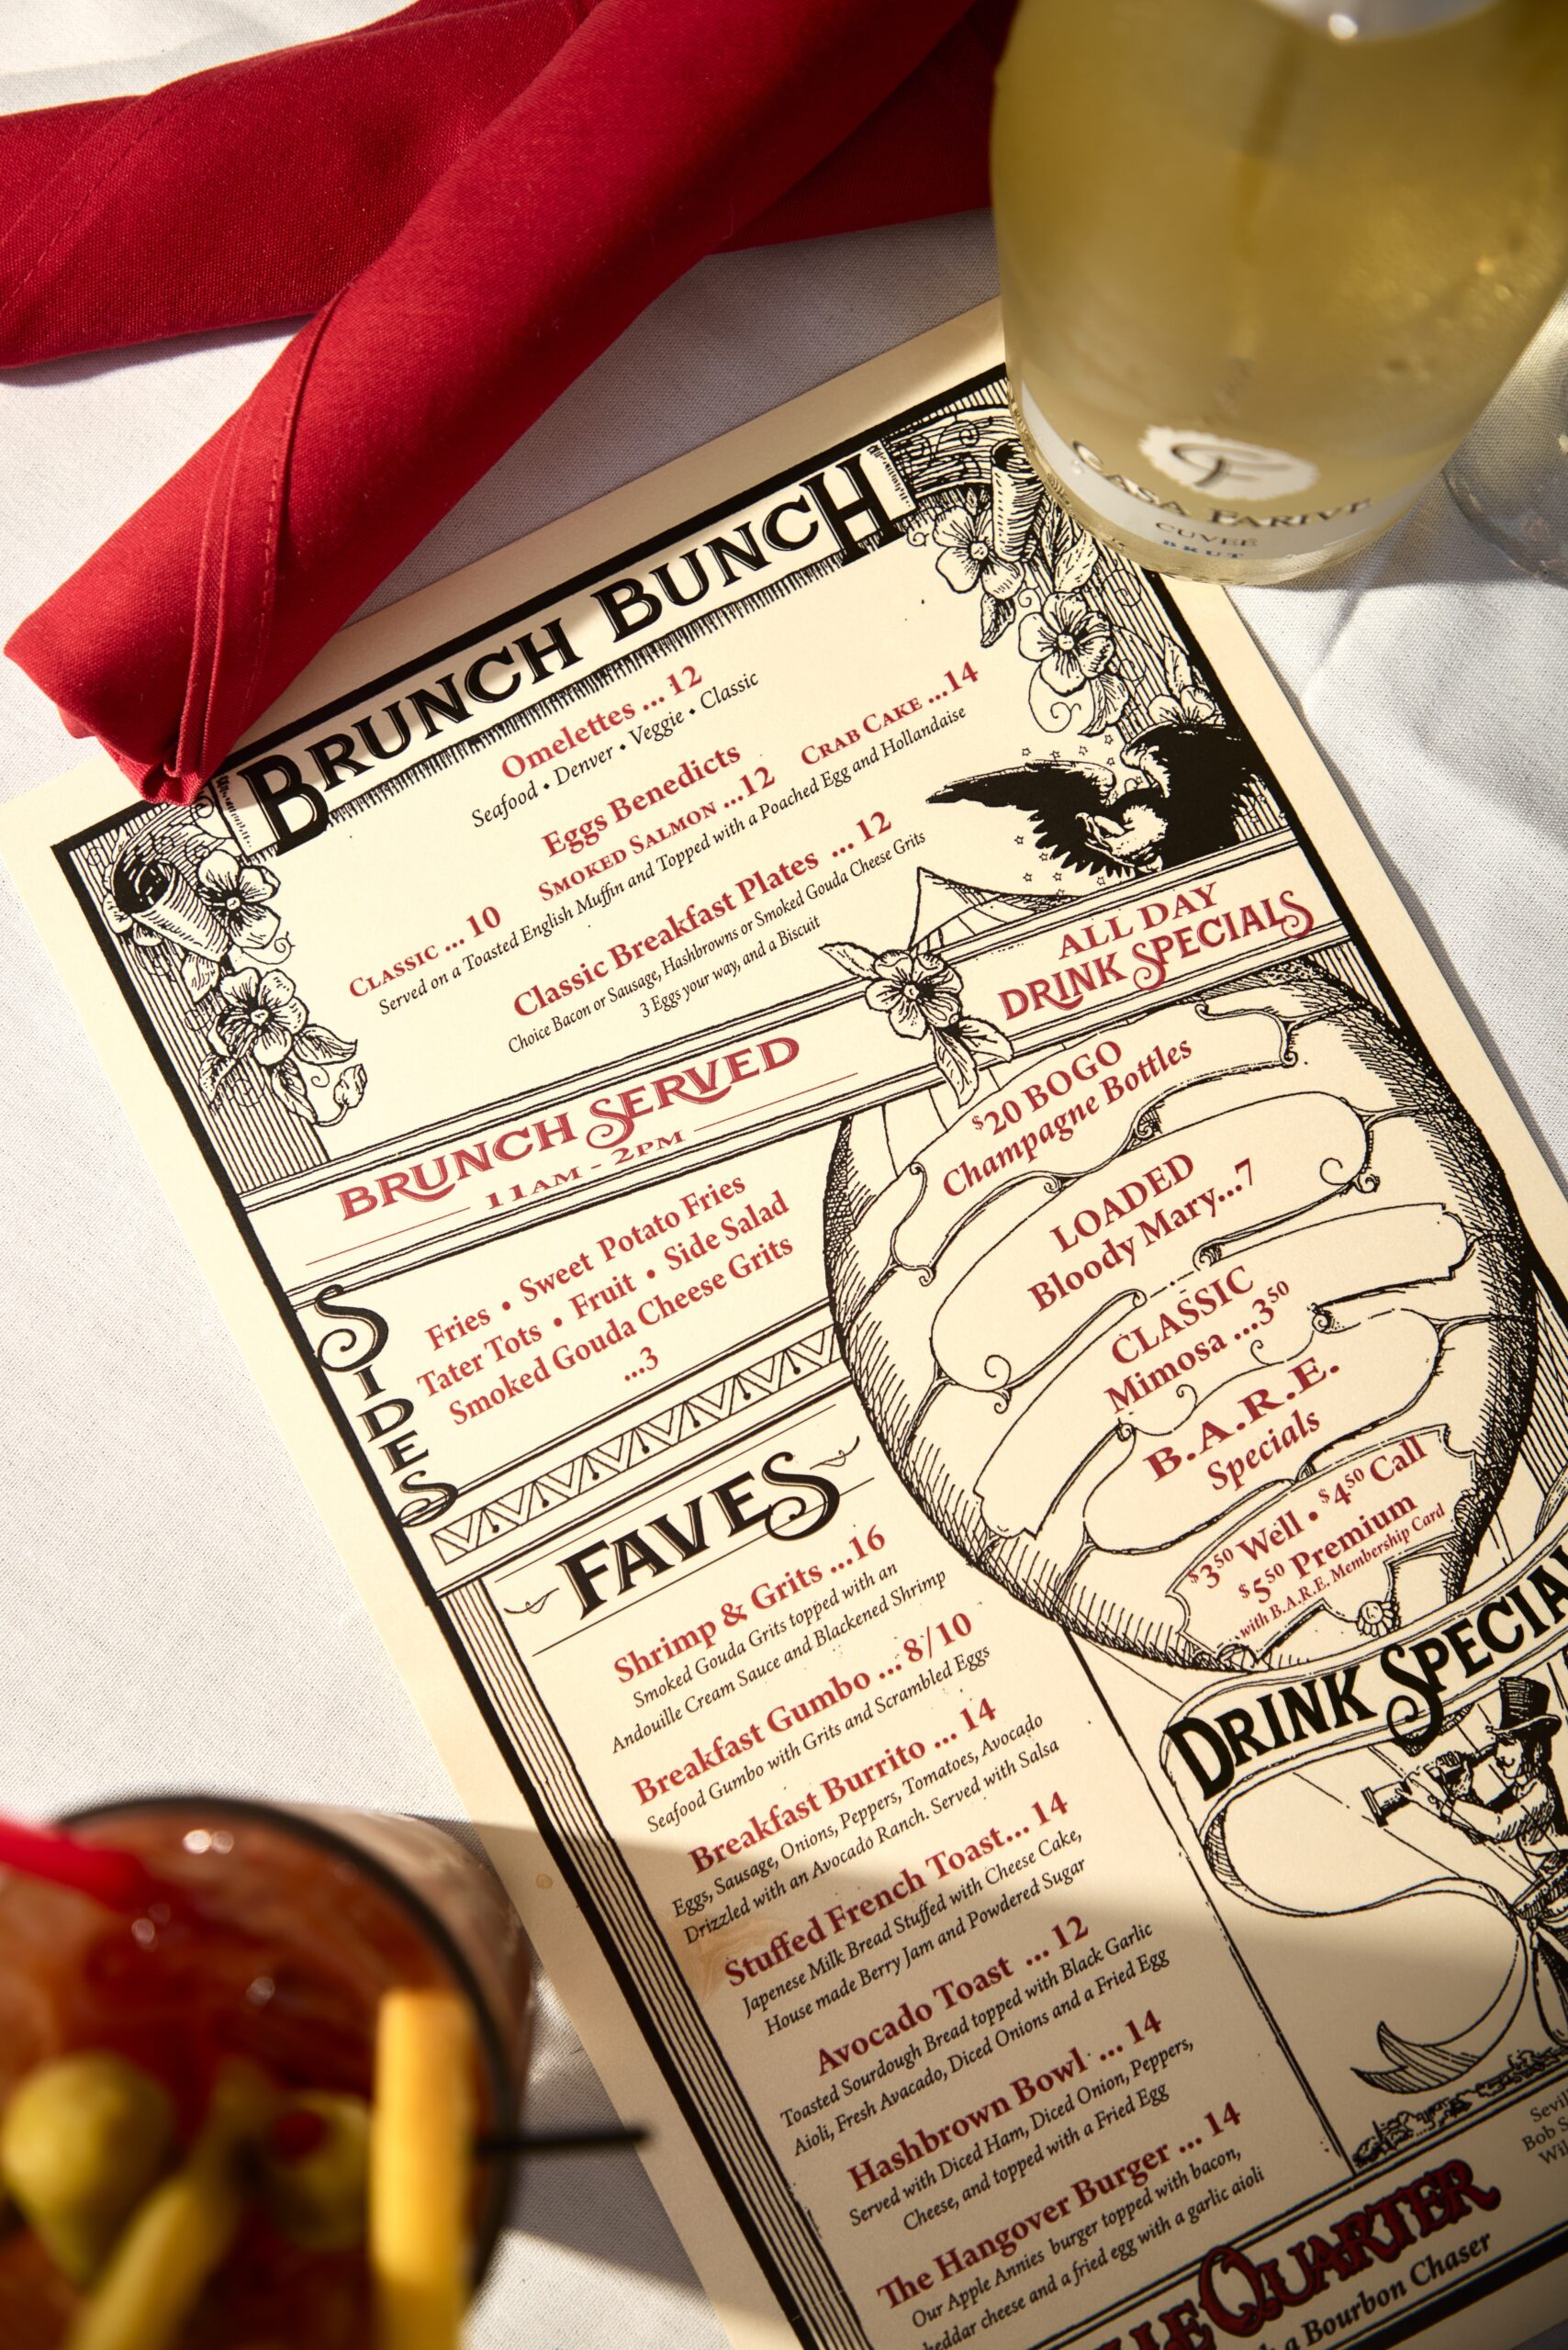 CASA FARIVE
CUVEÉ
BRUT
BRUNCH BUNCH
Omelettes ... 12
Seafood • Denver • Veggie • Classic
Eggs Benedicts
CLASSIC ... 10 SMOKED SALMON ...12 CRAB CAKE ...14
Served on a Toasted English Muffin and Topped with a Poached Egg and Hollandaise
Classic Breakfast Plates ... 12
Choice Bacon or Sausage, Hashbrowns or Smoked Gouda Cheese Grits
3 Eggs your way, and a Biscuit
BRUNCH SERVED
11AM - 2PM
SIDES
Fries • Sweet Potato Fries
Tater Tots • Fruit • Side Salad
Smoked Gouda Cheese Grits
...3
FAVES
Shrimp & Grits ...16
Smoked Gouda Grits topped with an
Andouille Cream Sauce and Blackened Shrimp
Breakfast Gumbo ... 8/10
Seafood Gumbo with Grits and Scrambled Eggs
Breakfast Burrito ... 14
Eggs, Sausage, Onions, Peppers, Tomatoes, Avocado
Drizzled with an Avocado Ranch. Served with Salsa
Stuffed French Toast... 14
Japenese Milk Bread Stuffed with Cheese Cake,
House made Berry Jam and Powdered Sugar
Avocado Toast ... 12
Toasted Sourdough Bread topped with Black Garlic
Aioli, Fresh Avacado, Diced Onions and a Fried Egg
Hashbrown Bowl ... 14
Served with Diced Ham, Diced Onion, Peppers,
Cheese, and topped with a Fried Egg
The Hangover Burger ... 14
Our Apple Annies burger topped with bacon,
cheese and a fried egg with a garlic aioli
ALL DAY
DRINK SPECIALS
$20 BOGO
Champagne Bottles
LOADED
Bloody Mary...7
CLASSIC
Mimosa ...3.50
B.A.R.E.
Specials
$3.50 Well • $4.50 Call
$5.50 Premium
with B.A.R.E. Membership Card
DRINK SPECIA
Bob
QUARTER
a Bourbon Chaser